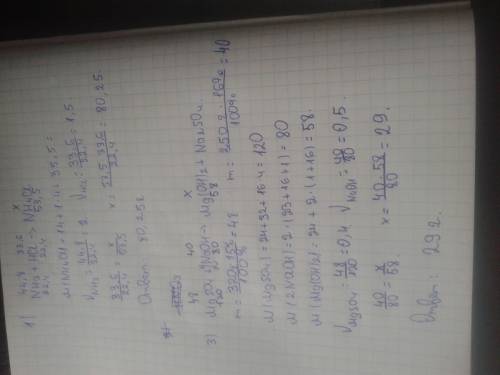 1) 44,8 33,6 x
NH3 + HCl → NH4Cl
22,4 22,4 53,5
M(NH4Cl) = 14 + 1·4 + 35,5 =
νNH3 = 44,8/22,4 = 2. νHCl = 33,6/22,4 = 1,5.
33,6/22,4 = x/53,5 x = 53,5·33,6/22,4 = 80,25.
Ответ 80,25г
48 40 x
3) MgSO4 + 2NaOH → Mg(OH)2 + Na2SO4.
120 80 58
m = 320·15%/100% = 48 m = 250г·16%/100% = 40
M(MgSO4) = 24 + 32 + 16·4 = 120
M(2NaOH) = 2·(23+16+1) = 80
M(Mg(OH)2) = 24 + 2·(1+16) = 58.
νMgSO4 = 48/120 = 0,4 νNaOH = 40/80 = 0,5.
40/80 = x/58. x = 40·58/80 = 29.
Ответ: 29г.